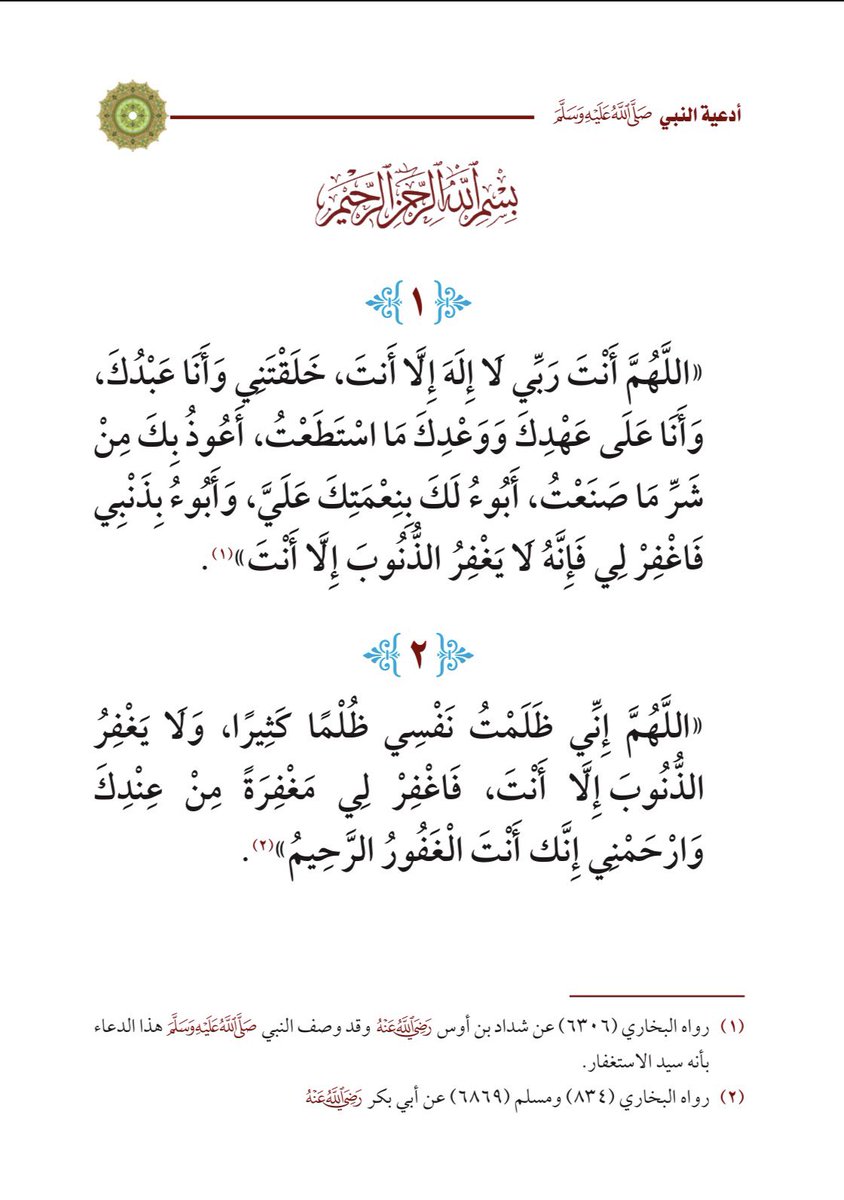 أدعية النبي صَلَّى اللَّهُ عَلَيْهِ وَسَلَّمَ
بِسْمِ اللَّهِ الرَّحْمَٰنِ الرَّحِيمِ
١
«اللَّهُمَّ أَنْتَ رَبِّي لَا إِلَهَ إِلَّا أَنتَ، خَلَقْتَنِي وَأَنَا عَبْدُكَ،
وَأَنَا عَلَى عَهْدِكَ وَوَعْدِكَ مَا اسْتَطَعْتُ، أَعُوذُ بِكَ مِنْ
شَرِّ مَا صَنَعْتُ، أَبُوءُ لَكَ بِنِعْمَتِكَ عَلَيَّ، وَأَبُوءُ بِذَنْبِي
فَاغْفِرْ لِي فَإِنَّهُ لَا يَغْفِرُ الذُّنُوبَ إِلَّا أَنْتَ»(١).
٢
«اللَّهُمَّ إِنِّي ظَلَمْتُ نَفْسِي ظُلْمًا كَثِيرًا، وَلَا يَغْفِرُ
الذُّنُوبَ إِلَّا أَنْتَ، فَاغْفِرْ لِي مَغْفِرَةً مِنْ عِنْدِكَ
وَارْحَمْنِي إِنَّك أَنْتَ الْغَفُورُ الرَّحِيمُ»(٢).
(١) رواه البخاري (٦٣٠٦) عن شداد بن أوس رَضِيَ اللَّهُ عَنْهُ وقد وصف النبي صَلَّى اللَّهُ عَلَيْهِ وَسَلَّمَ هذا الدعاء
بأنه سيد الاستغفار.
(٢) رواه البخاري (٨٣٤) ومسلم (٦٨٦٩) عن أبي بكر رَضِيَ اللَّهُ عَنْهُ